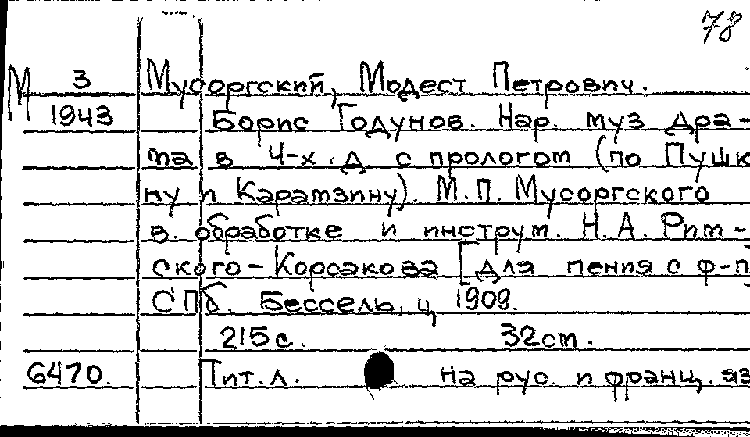 78
М 3 Мусоргский, Модест Петрович.
1943 Борис Годунов. Нар. муз дра-
ма в 4-х. д. с прологом (по Пушк
ну и Карамзину). М.П. Мусоргского
в. обработке и инструм. Н.А. Рим-
ского-Корсакова [для пения с ф-п]
СПб. Бессель, ц, 1909.
215с. 32см.
6470. Тит.л. на рус. и франц. яз